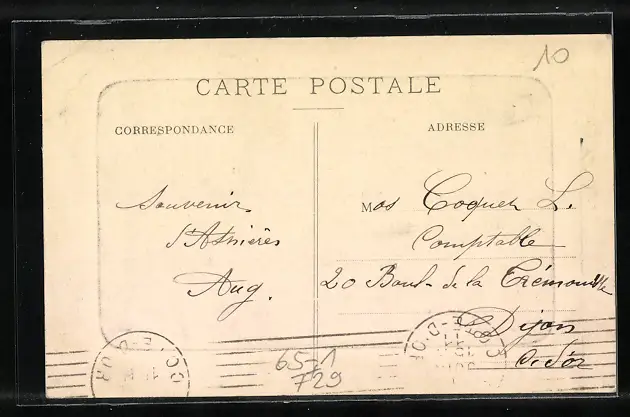 10
CARTE POSTALE
CORRESPONDANCE
ADRESSE
Souvenir
d'Asnières
Aug.
Mos Coquet L.
Comptable
20 Boul. de la Trémouille
Dijon
C. d'Or
65-1
729
COTE-D'OR
COTE-D'OR